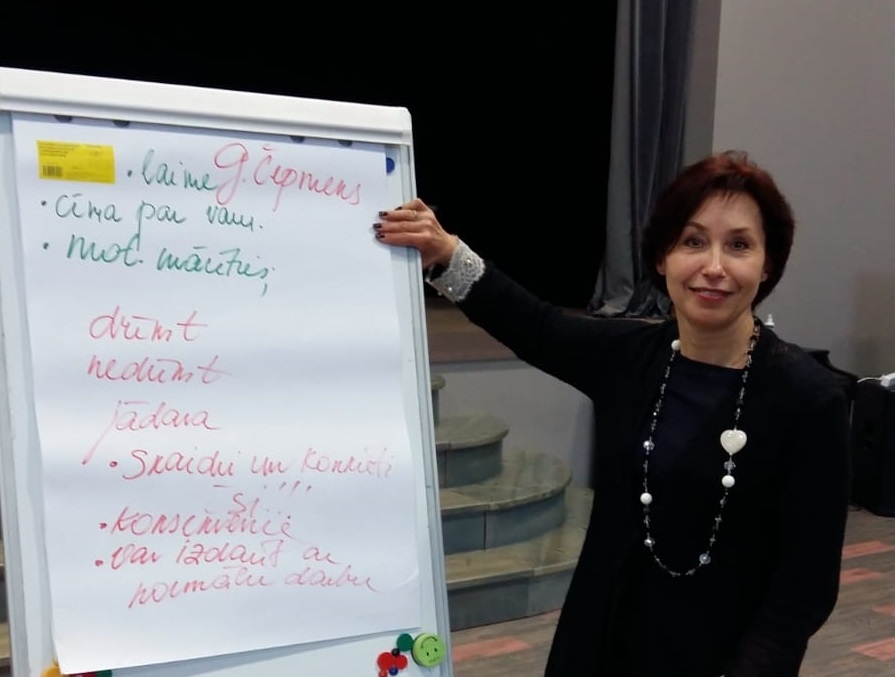 • laime G. Čepmens
• cīņa par varu.
• mot. mācīties;
drīkst
nedrīkst
jādara
• Skaidri un konkrēti
šī!!!
• konsekvence
• var izdarīt ar
normālu darbu